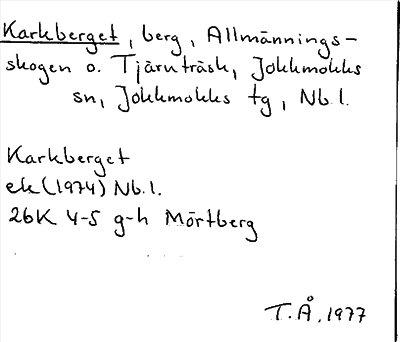 Karkberget, berg, Allmännings-
skogen o. Tjärnträsk, Jokkmokks
sn, Jokkmokks tg, Nb.l.
Karkberget
ek (1974) Nb.l.
26K 4-5 g-h Mörtberg
T.Å. 1977